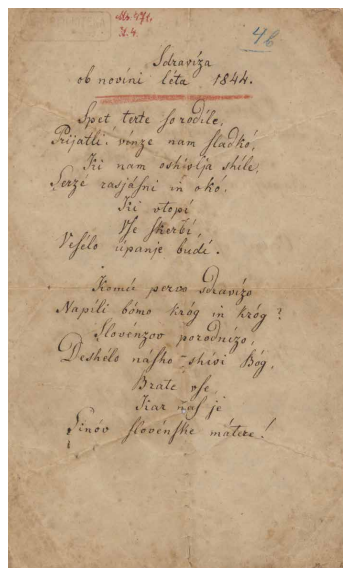 Ms 471,
4b
Sdravíza
ob novíni léta 1844.
Spet terte so rodíle,
Prijatli! vínze nam sladkó,
Ki nam oshivlja shíle,
Serzé rasjásni in oko,
Ki vtopí
Vse skerbí,
Vsélo upanje budí.
Komú pervo Sdravízo
Napíli bómo króg in króg?
Slovénzov porodnízo,
Deshélo násho shívi Bóg,
Brate vse
Kar nas je
Sinóv slovénske mátere!